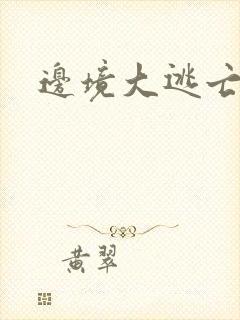 邊境大逃亡
黃翠